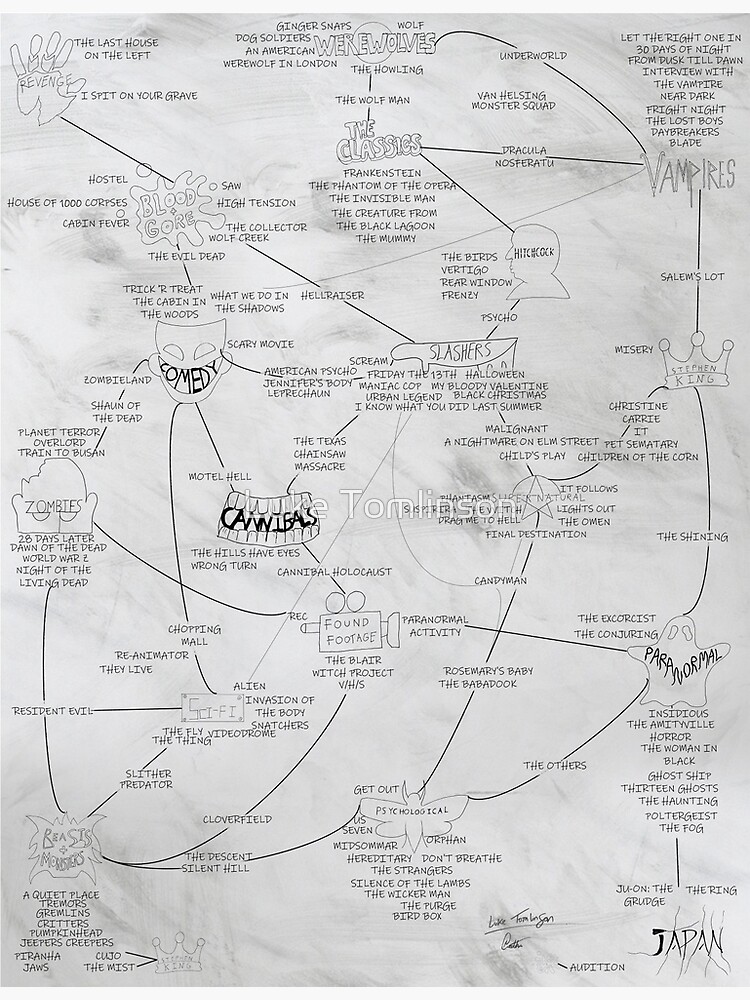 THE LAST HOUSE
ON THE LEFT
REVENGE
I SPIT ON YOUR GRAVE
GINGER SNAPS
WOLF
DOG SOLDIERS
AN AMERICAN
WEREWOLF IN LONDON
WEREWOLVES
THE HOWLING
UNDERWORLD
LET THE RIGHT ONE IN
30 DAYS OF NIGHT
FROM DUSK TILL DAWN
INTERVIEW WITH
THE VAMPIRE
NEAR DARK
FRIGHT NIGHT
THE LOST BOYS
DAYBREAKERS
BLADE
THE WOLF MAN
VAN HELSING
MONSTER SQUAD
THE CLASSICS
DRACULA
NOSFERATU
VAMPIRES
FRANKENSTEIN
THE PHANTOM OF THE OPERA
THE INVISIBLE MAN
THE CREATURE FROM
THE BLACK LAGOON
THE MUMMY
HOSTEL
SAW
HOUSE OF 1000 CORPSES
BLOOD + GORE
HIGH TENSION
CABIN FEVER
THE COLLECTOR
WOLF CREEK
THE EVIL DEAD
HITCHCOCK
THE BIRDS
VERTIGO
REAR WINDOW
FRENZY
PSYCHO
SALEM'S LOT
TRICK 'R TREAT
THE CABIN IN
THE WOODS
WHAT WE DO IN
THE SHADOWS
HELLRAISER
SCARY MOVIE
COMEDY
ZOMBIELAND
SHAUN OF
THE DEAD
AMERICAN PSYCHO
JENNIFER'S BODY
LEPRECHAUN
SCREAM
SLASHERS
FRIDAY THE 13TH HALLOWEEN
MANIAC COP MY BLOODY VALENTINE
URBAN LEGEND BLACK CHRISTMAS
I KNOW WHAT YOU DID LAST SUMMER
MISERY
STEPHEN
KING
CHRISTINE
CARRIE
IT
PET SEMATARY
CHILDREN OF THE CORN
MALIGNANT
A NIGHTMARE ON ELM STREET
CHILD'S PLAY
PLANET TERROR
OVERLORD
TRAIN TO BUSAN
ZOMBIES
28 DAYS LATER
DAWN OF THE DEAD
WORLD WAR Z
NIGHT OF THE
LIVING DEAD
THE TEXAS
CHAINSAW
MASSACRE
MOTEL HELL
CANNIBALS
Luke Tomlinson
THE HILLS HAVE EYES
WRONG TURN
CANNIBAL HOLOCAUST
PHANTASM
SUPERNATURAL
IT FOLLOWS
SUSPIRIA
LIGHTS OUT
DRAG ME TO HELL
THE OMEN
FINAL DESTINATION
THE SHINING
CANDYMAN
REC
FOUND
FOOTAGE
PARANORMAL
ACTIVITY
THE BLAIR
WITCH PROJECT
V/H/S
THE EXCORCIST
THE CONJURING
PARANORMAL
INSIDIOUS
THE AMITYVILLE
HORROR
THE WOMAN IN
BLACK
GHOST SHIP
THIRTEEN GHOSTS
THE HAUNTING
POLTERGEIST
THE FOG
CHOPPING
MALL
RE-ANIMATOR
THEY LIVE
RESIDENT EVIL
SCI-FI
ALIEN
INVASION OF
THE BODY
SNATCHERS
THE FLY VIDEODROME
THE THING
SLITHER
PREDATOR
ROSEMARY'S BABY
THE BABADOOK
THE OTHERS
CLOVERFIELD
THE DESCENT
SILENT HILL
GET OUT
PSYCHOLOGICAL
US
SEVEN
ORPHAN
MIDSOMMAR
HEREDITARY DON'T BREATHE
THE STRANGERS
SILENCE OF THE LAMBS
THE WICKER MAN
THE PURGE
BIRD BOX
BEASTS
+
MONSTERS
A QUIET PLACE
TREMORS
GREMLINS
CRITTERS
PUMPKINHEAD
JEEPERS CREEPERS
PIRANHA
JAWS
CUJO
THE MIST
STEPHEN
KING
JU-ON: THE
GRUDGE
THE RING
JAPAN
AUDITION
Luke Tomlinson